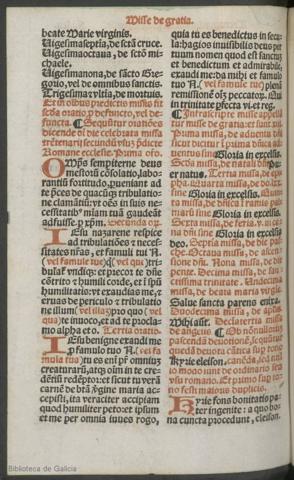 Misse de gratia.
beate Marie virginis.
Uigesimaseptīa, de sctā cruce.
Uigesimaoctaua, de sctō mi-
chaele.
Uigesimanona, de sācto Gre-
gorio, vel de omnibus sanctis.
Trigesima vltīa, de mortuis.
Et in oībus predictis missis fit
scda oratō, p defuncto, vel de-
functa.
dicende ol die celebrata missa
trētenarij secundū vsuȝ p̄dicte
Romane ecclesie. Primo oro.
Omps sempiterne deus
mestorū cōsolatio, labo-
rantiū fortitudo, pueniant ad
te p̄ces de quacūqȝ tribulatio-
ne clamātiū: vt oēs in suis ne-
cessitatibꝰ mīam tuā gaudeāt
adfuisse p xpm. Secunda oro.
Iesu nazarene respice
ad tribulationēs & neces-
sitates nr̄as, et famuli tui N.
(vel famule tue)
bulat vndiqȝ: et precor te dn̄e
cōtrito & humili corde, et ispū
humilitatis: vt exaudias me, &
eruas de periculo & tribulatio
ne illum (vel illā) pro quo (vel
qua) te inuoco, et ad te procla-
mo alpha et o. Tertia oratio.
Iesu benigne exaudi me
p famulo tuo N. (vel fa
mula tua) tu es eni p̄r omniuȝ
creaturaȝ, atqȝ oīm in te cre-
dētiū redēptor: et sicut tu verā
carnē de btā v̄gine maria ac-
cepisti, ita veraciter accipiam
quod humiliter peto: et ipsum
et me per omnia iuues rogo,
quia tu es benedictus in secu-
la: hagios inuisibilis deus pr̄
tuum nomen quod est sanctuȝ
et benedictum et admirabile,
exaudi me: da mihi et famulo
tuo N. (vel famule tue) pleni
remissionē oīs peccator. Qui
in trinitate p̄fecta vi. et reg.
Infrascripte misse appellā
tur misse de gratia: et sunt xvi.
Prima missa, de aduentu dñi
sicut dicitur ī prima dñica ad-
uentus sine Gloria in excelsis.
Scda missa, de natali dñi Pu-
er natus. Tertia missa, de epi-
pha. Quarta missa, de dolo-
ribꝰ sine Gloria in excelsis. Quin
ta missa, de dñica ī ramis pal-
marū sine Gloria in excelsis.
Sexta missa, de feria. v. in ce-
na dñi sine Gloria in excelsis
deo. Septīa missa, de die pas-
che. Octaua missa, de ascen-
sione dñi. Nona missa, de die
pente. Decima missa, de san-
ctissima trinitate. Undecima
missa, de beata maria virgīe
Salue sancta parens entra.
Duodecima missa, de aplis.
Mihi aūt. Decimatertia missa
de angelis.
pascendā deuotionē, le quētia
ky rie eleison, cantādi, eo q̄ nul-
lo modo sunt de ordinatio seu
vsu romano. Et primo sup to-
no festi maioris duplicis.
Kyrie fons bonitatis pa-
ter ingenite: a quo bo-
na cuncta procedunt, eleison.
Biblioteca de Galicia